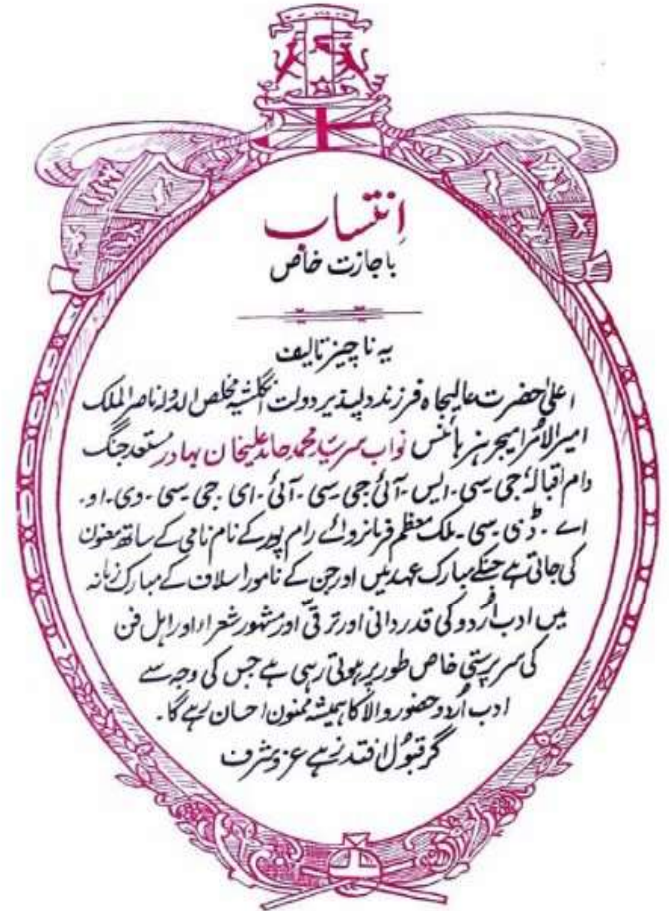 اِنتساب
باجازت خاص
یہ ناچیز تالیف
اعلیٰ حضرت عالیجاہ فرزند دلپذیر دولت انگلشیہ مخلص الدولہ ناصر الملک
امیر الامرا میجر ہز ہائنس نواب سر سید محمد حامد علیخان بہادر مستعد جنگ
دام اقبالہٗ جی۔سی۔ایس۔آئی جی۔سی۔آئی۔ای۔جی۔سی۔وی۔او۔
اے۔ڈی۔سی۔ملک معظم فرمانروائے رام پور کے نام نامی کے ساتھ معنون
کی جاتی ہے جنکے مبارک عہد میں اور جن کے نامور اسلاف کے مبارک زمانہ
میں ادب اُردو کی قدردانی اور ترقی اور مشہور شعراء اور اہل فن
کی سرپرستی خاص طور پر ہوتی رہی ہے جس کی وجہ سے
ادب اُردو حضور والا کا ہمیشہ ممنون احسان رہے گا۔
گر قبول افتد زہے عز و شرف